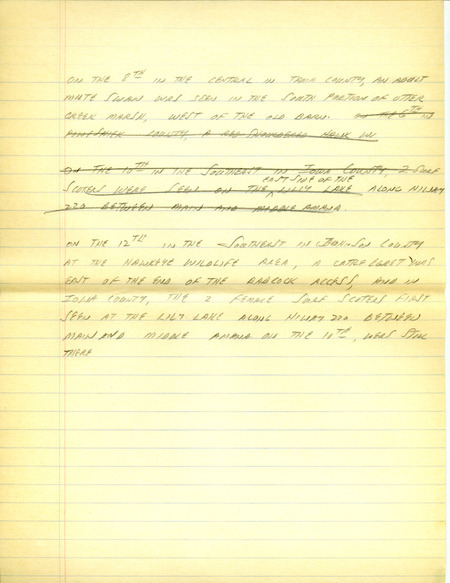 ON THE 8TH IN THE CENTRAL IN TAMA COUNTY, AN ADULT
MUTE SWAN WAS SEEN IN THE SOUTH PORTION OF OTTER
CREEK MARSH, WEST OF THE OLD BARN. ON THE 6TH IN
COUNTY, A RED SHOULDERED HAWK IN
ON THE 10TH IN THE SOUTHEAST IN IOWA COUNTY, 2 SURF
EAST SIDE OF THE
SCOTERS WERE SEEN ON THE LILY LAKE ALONG HIWAY
220 BETWEEN MAIN AND MIDDLE AMANA.
ON THE 12TH IN THE SOUTHEAST IN JOHNSON COUNTY
AT THE HAWKEYE WILDLIFE AREA, A CATTLE EGRET WAS
EAST OF THE END OF THE BABCOCK ACCESS, AND IN
IOWA COUNTY, THE 2 FEMALE SURF SCOTERS FIRST
SEEN AT THE LILY LAKE ALONG HIWAY 220 BETWEEN
MAIN AND MIDDLE AMANA ON THE 10TH, WERE STILL
THERE